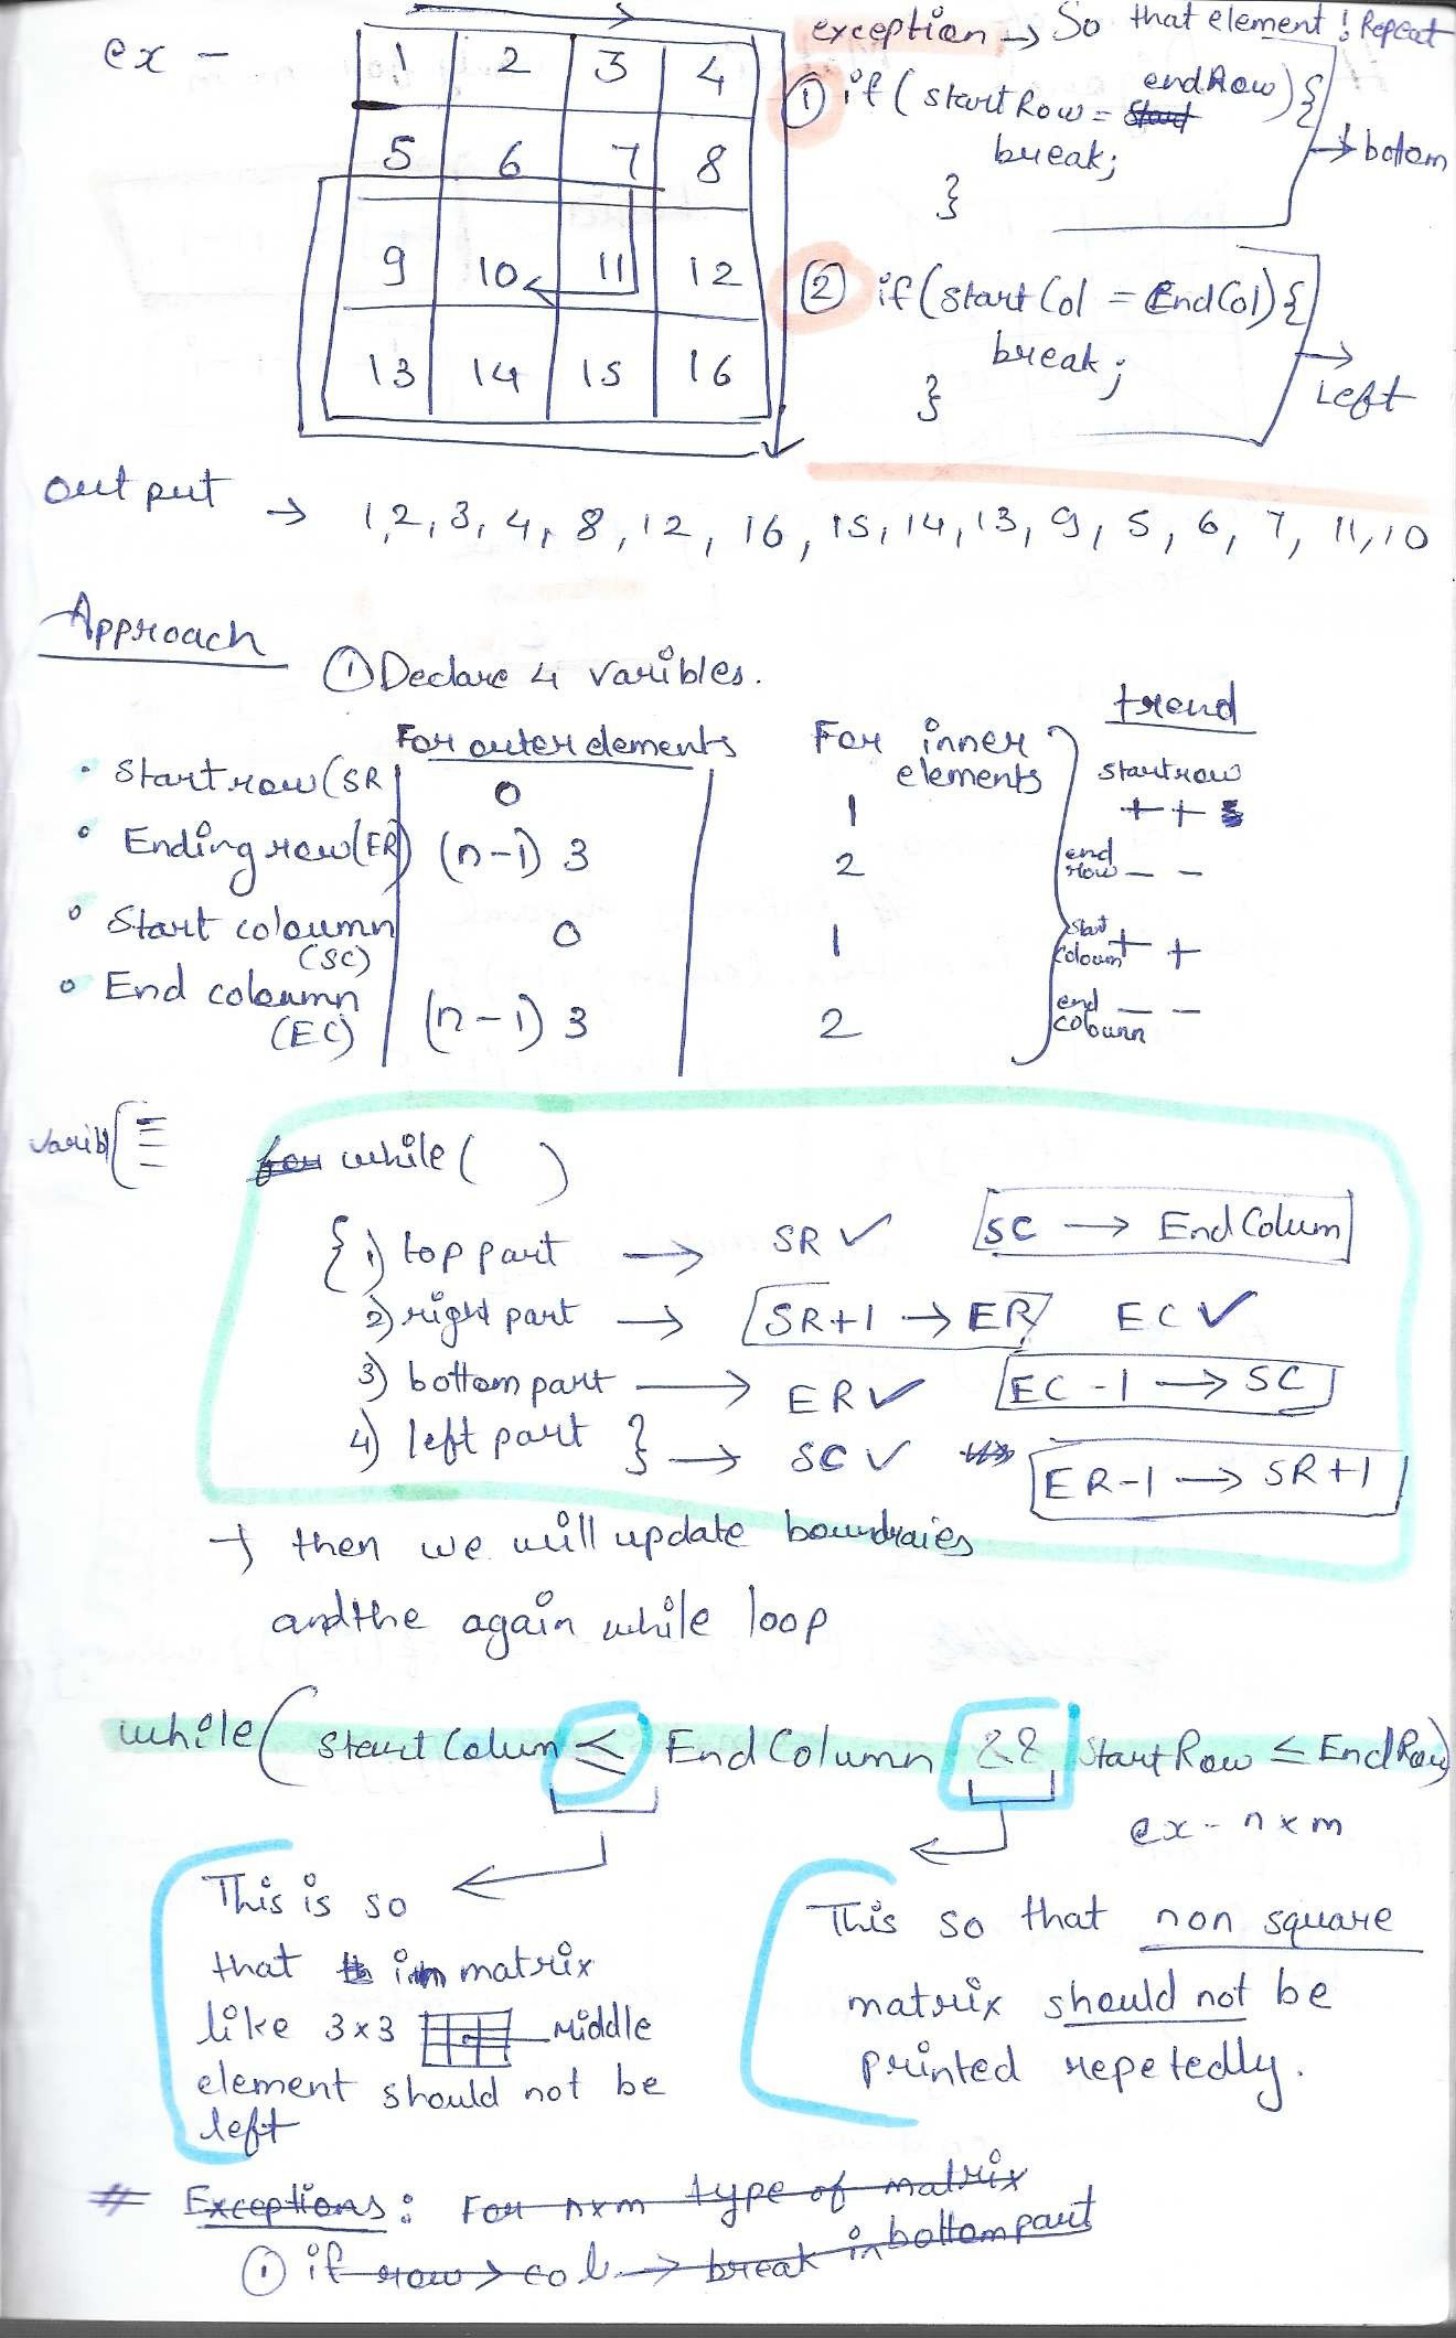 ex -
1 2 3 4
5 6 7 8
9 10 11 12
13 14 15 16
exception → So that element ! Repeat
① if ( startRow = endRow ) {
break;
}
→ botom
② if ( Start Col = EndCol ) {
break ;
}
→ Left
output → 1,2, 3, 4, 8, 12, 16, 15, 14, 13, 9, 5, 6, 7, 11, 10
Approach
① Declare 4 varibles.
For outer elements
For inner
elements
trend
• Start row (SR
0
1
startrow
+ +
• Ending row (ER)
(n-1) 3
2
end
row - -
• Start coloumn
(SC)
0
1
start
coloum + +
• End coloumn
(EC)
(n-1) 3
2
end
coloumn - -
varibl
for while ( )
{ 1) top part → SR ✓ SC → End Colum
2) right part → SR+1 → ER EC ✓
3) bottom part → ER ✓ EC -1 → SC
4) left part } → SC ✓ ER-1 → SR+1
→ then we will update boundraies
and the again while loop
while ( Start Colum ≤ End Column && Start Row ≤ End Row)
ex - n x m
This is so
that in matrix
like 3x3 Middle
element should not be
left
This so that non square
matrix should not be
printed repetedly.
# Exceptions : For nxm type of matrix
① if row > col → break in bottom part